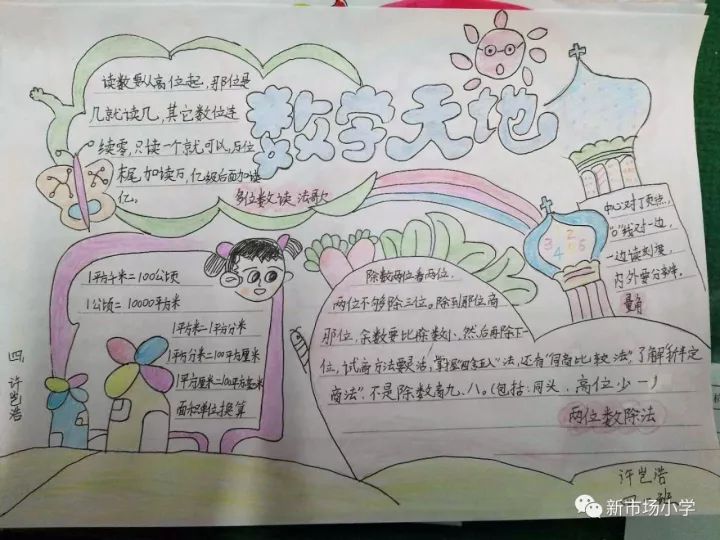 数学天地
读数要从高位起，那位是
几就读几，其它数位连
续零，只读一个就可以，
末尾加读万，亿级后面加读
亿。
多位数读法歌
中心对丁顶点，
"0"线对一边，
一边读刻度，
内外要分清，
量角
3 2 4 5
1平方千米=100公顷
1公顷=10000平方米
1平方米=1平方分米
1平方分米=100平方厘米
1平方厘米=100平方毫米
面积单位换算
除数两位看两位，
两位不够除三位。除到那位商
那位，余数要比除数小，然后再除下一
位，试商方法要灵活，掌握"四舍五入"法，还有"同商比较法"，了解"折半定
商法"，不是除数商九、八。（包括：同头、高位少一）
两位数除法
四、许岂浩
许岂浩
四、一班
新市场小学